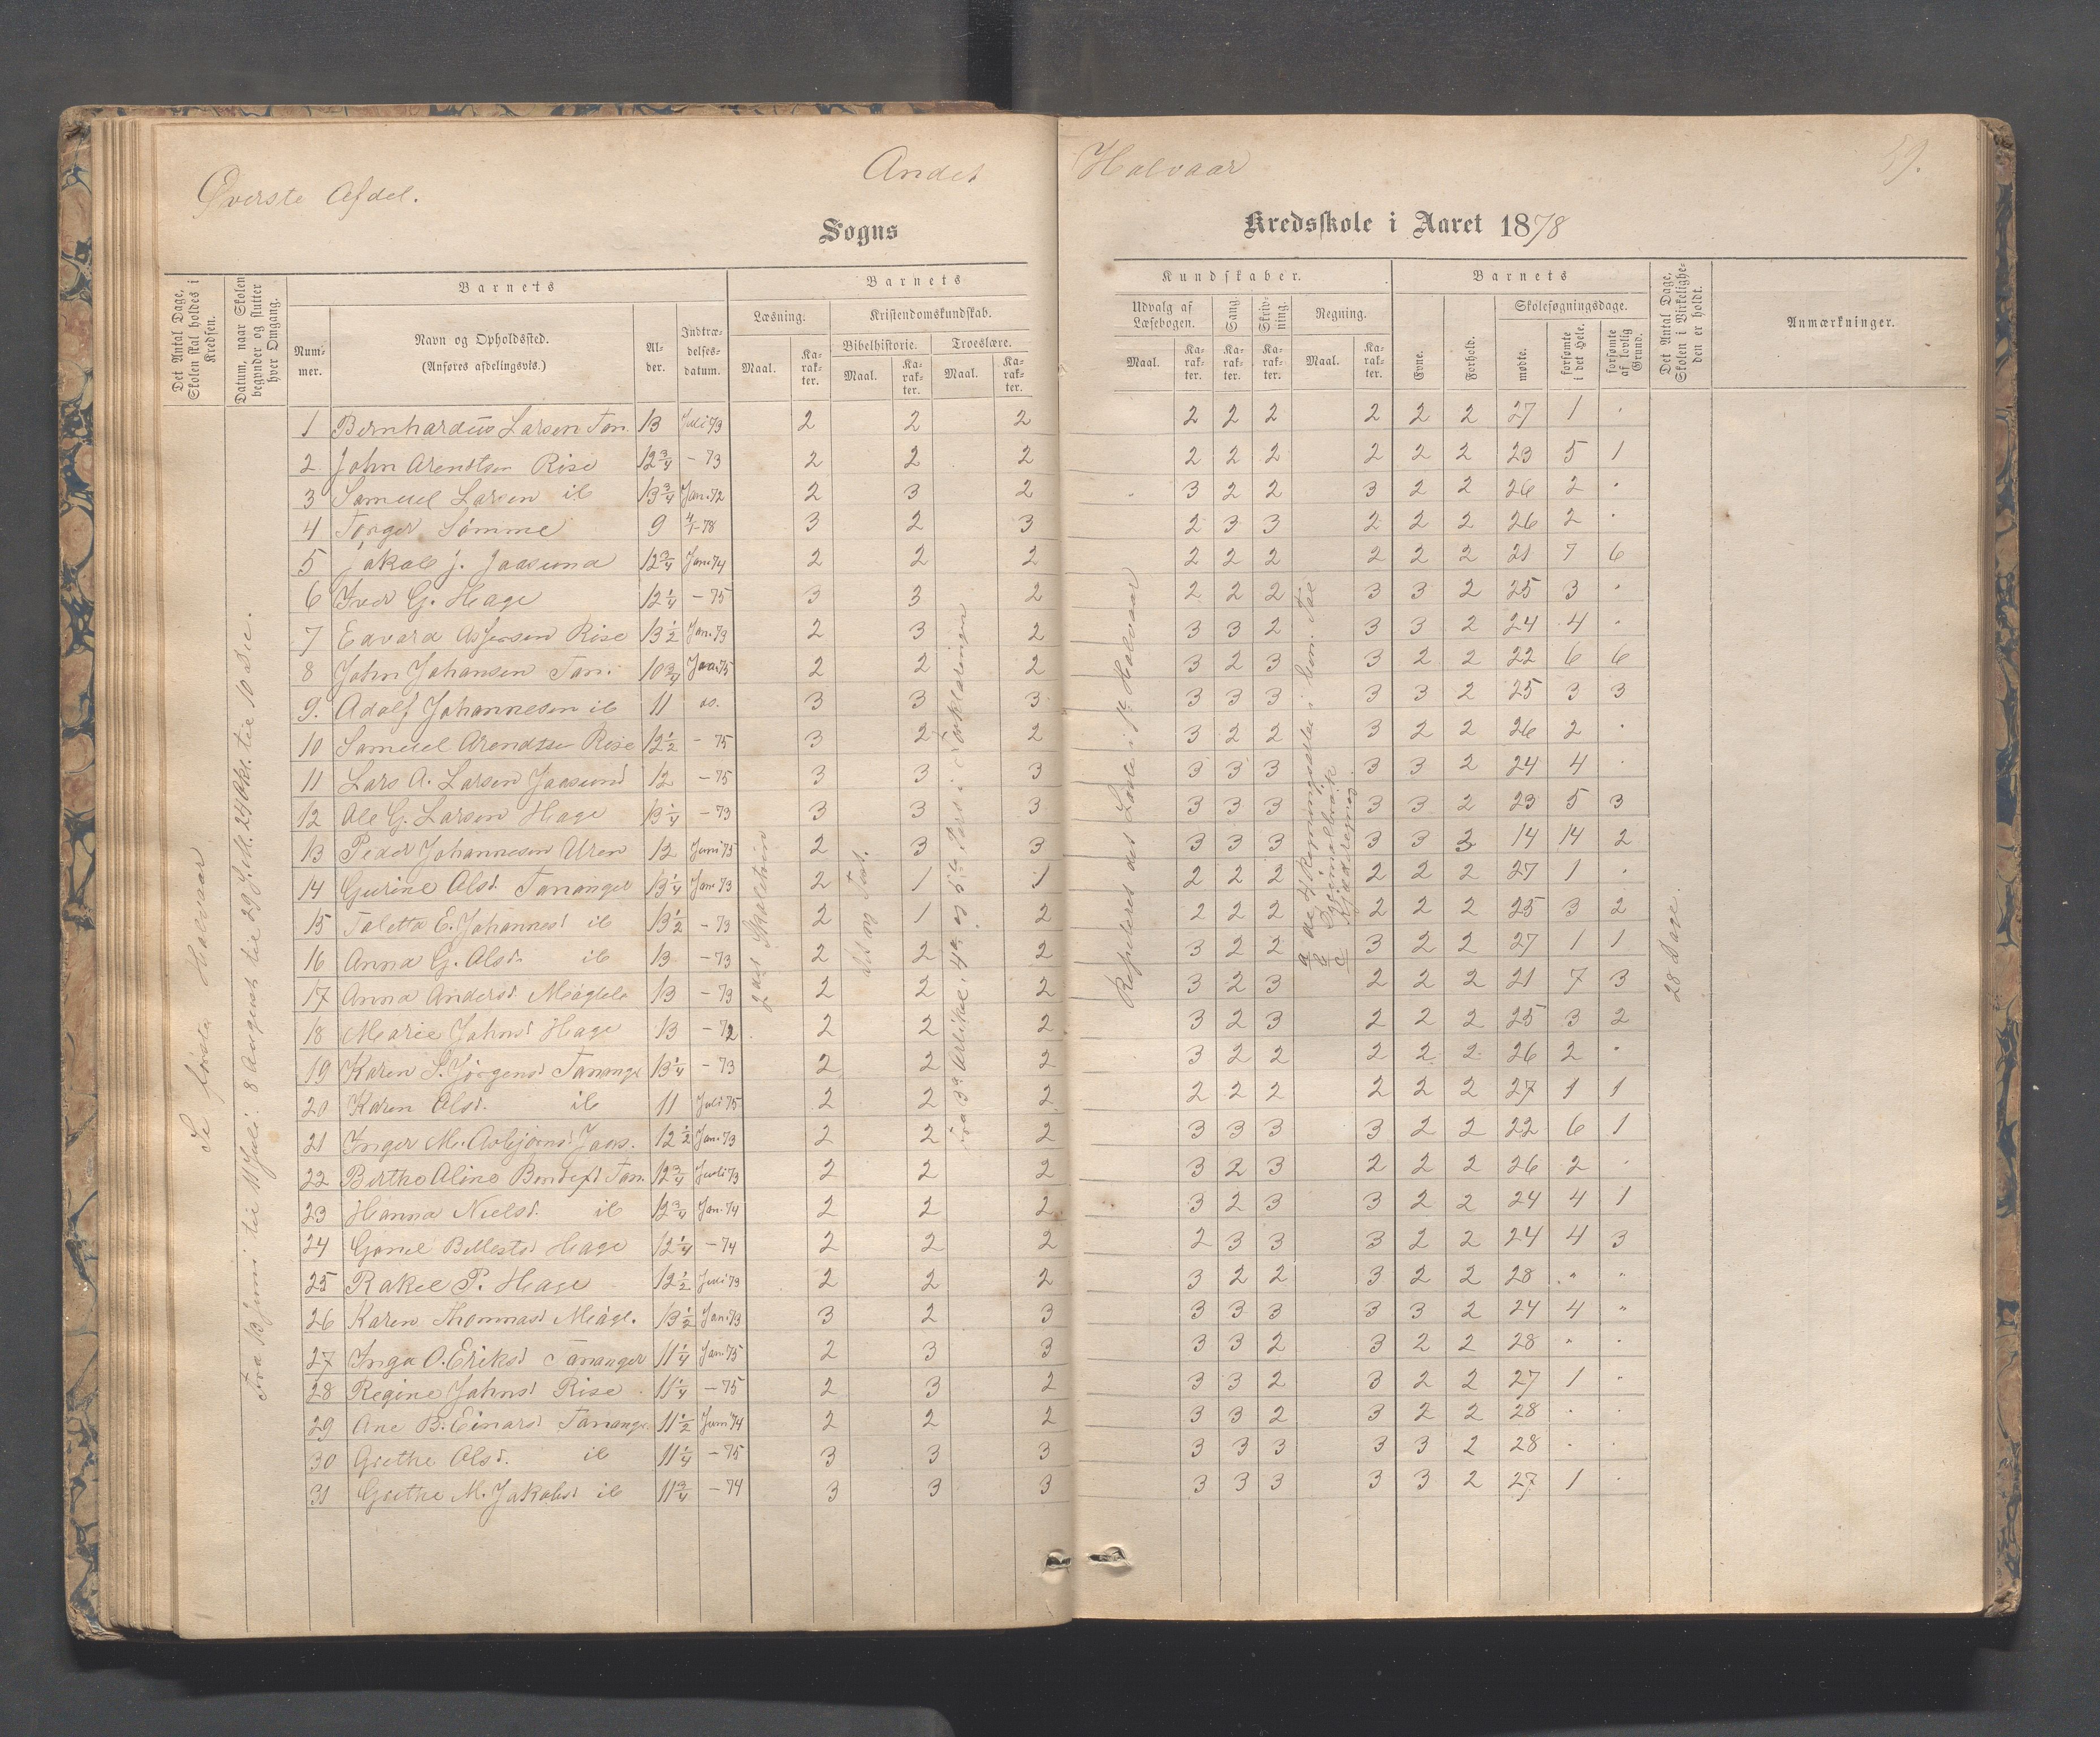 Øverste Afdel.
Andet Halvaar
59.
Sogns Kredsskole i Aaret 1878
Det Antal Dage, Skolen skal holdes i Kredsen.
Datum, naar Skolen begynder og slutter hver Omgang.
Barnets
Num-mer.
Navn og Opholdssted.
(Anføres afdelingsvis.)
Al-der.
Indtræ-delses-datum.
Barnets Kundskaber.
Læsning.
Maal.
Ka-rak-ter.
Kristendomskundskab.
Bibelhistorie.
Maal.
Ka-rak-ter.
Troeslære.
Maal.
Ka-rak-ter.
Udvalg af Læsebogen.
Maal.
Ka-rak-ter.
Sang.
Ka-rak-ter.
Skriv-ning.
Ka-rak-ter.
Regning.
Maal.
Ka-rak-ter.
Barnets
Evne.
Forhold.
Skolesøgningsdage.
mødte.
forsømte i det Hele.
forsømte af lovlig Grund.
Det Antal Dage, Skolen i Virkelighe-den er holdt.
Anmærkninger.
1 Bernhardus Larsen Tan. 13 Juli 73 2 2 2 2 2 2 2 2 2 27 1 .
2 John Arendtsen Rise 12 3/4 - 73 2 2 2 2 2 2 2 2 2 23 5 1
3 Samuel Larsen ib 13 3/4 Jan. 72 2 3 2 3 2 2 3 2 2 26 2 .
4 Torger Sømme 9 4/1-78 3 2 3 2 3 3 2 2 2 26 2 .
5 Jakob J. Jaasund 12 3/4 Jan 74 2 2 2 2 2 2 2 2 2 21 7 6
6 Iver G. Hage 12 1/4 - 75 3 3 2 2 2 2 3 3 2 25 3 .
7 Edvard Asjersen Rise 13 1/2 Jan. 73 2 3 2 3 3 2 3 3 2 24 4 .
8 John Johansen Tan. 10 3/4 Jan 75 2 2 2 3 2 3 3 2 2 22 6 6
9. Adolf Johannesen ib 11 do. 3 3 3 3 3 3 3 3 2 25 3 3
10 Samuel Arendtsen Rise 12 1/2 - 75 3 2 2 3 2 2 3 2 2 26 2 .
11 Lars A. Larsen Jaasund 12 - 75 3 3 3 3 3 3 3 3 2 24 4 .
12 Ole G. Larsen Hage 13 1/4 - 73 3 3 3 3 3 3 3 3 2 23 5 3
13 Peder Johannesen Uren 12 Juni 75 2 3 3 3 3 3 3 3 3 14 14 2
14 Gurine Olsd. Tananger 13 1/4 Jan 73 2 1 1 2 2 2 2 2 2 27 1 .
15 Taletta E. Johannesd ib 13 1/2 - 73 2 1 2 2 2 2 2 2 2 25 3 2
16 Anna G. Olsd. ib 13 - 73 2 2 2 3 2 2 3 2 2 27 1 1
17 Anna Andersd. Meågleb. 13 - 73 2 2 2 3 2 3 2 2 2 21 7 3
18 Marie Johnsd Hage 13 - 72 2 2 2 3 2 3 2 2 2 25 3 2
19 Karen S. Jørgensd Tanange 13 1/4 - 73 2 2 2 3 2 2 2 2 2 26 2 .
20 Karen Olsd. ib 11 Juli 75 2 2 2 2 2 2 2 2 2 27 1 1
21 Inger M. Asbjørnsd Jaas. 12 1/2 Jan. 73 2 2 2 3 3 3 3 2 2 22 6 1
22 Berthe Aline Bendixd Tan. 12 3/4 Juli 73 2 2 2 3 2 3 2 2 2 26 2 .
23 Hanna Nielsd. ib 12 3/4 Jan. 74 2 2 2 3 2 3 3 2 2 24 4 1
24 Gorine Bellestsd Hage 12 1/4 - 74 2 2 2 2 3 3 3 2 2 24 4 3
25 Rakel P. Hage 12 1/2 Juli 73 2 2 2 3 2 2 3 2 2 28 " "
26 Karen Thomasd Meågl. 13 1/2 Jan 73 3 2 3 3 3 3 3 3 2 24 4 "
27 Inga O. Eriksd Tananger 11 1/4 Jan. 75 2 3 3 3 3 2 3 2 2 28 " .
28 Regine Johnsd Rise 11 1/4 - 75 2 3 2 3 3 2 3 2 2 27 1 "
29 Ane B. Einarsd Tanange. 11 1/2 Juni 74 2 2 2 3 3 2 3 2 2 28 . .
30 Grethe Olsd. ib 11 1/4 - 75 3 3 3 3 3 3 3 3 2 28 . .
31 Grethe M. Jakobsd ib 11 3/4 - 74 3 3 3 3 3 3 3 3 2 27 1 .
Se første Halvaar
Fra 13 Juni til 11 Juli. 8 August til 29 Juli. 24 Okt. til 10 Dec.
2det Skoletrin
Fra 3die Artikel, 4de og 5te Part i Forklaringen
Repeteret det Læste i 1ste Halvaar
28 Dage.